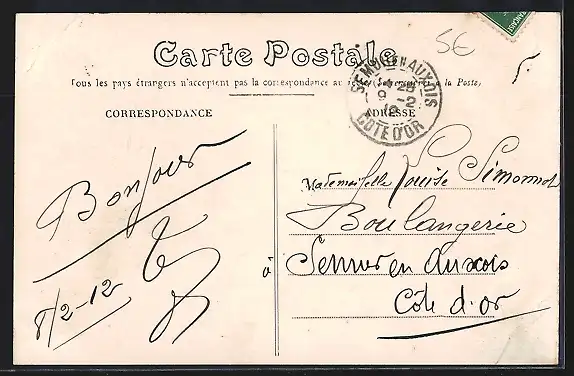 Carte Postale
Tous les pays étrangers n'acceptent pas la correspondance au
la Poste)
CORRESPONDANCE
ADRESSE
SEMUR EN AUXOIS
9 -2
12
COTE D'OR
5€
Bonjour
8/2-12
Mademoiselle Louise Simonnot
Boulangerie
à Semur en Auxois
Côte d'or